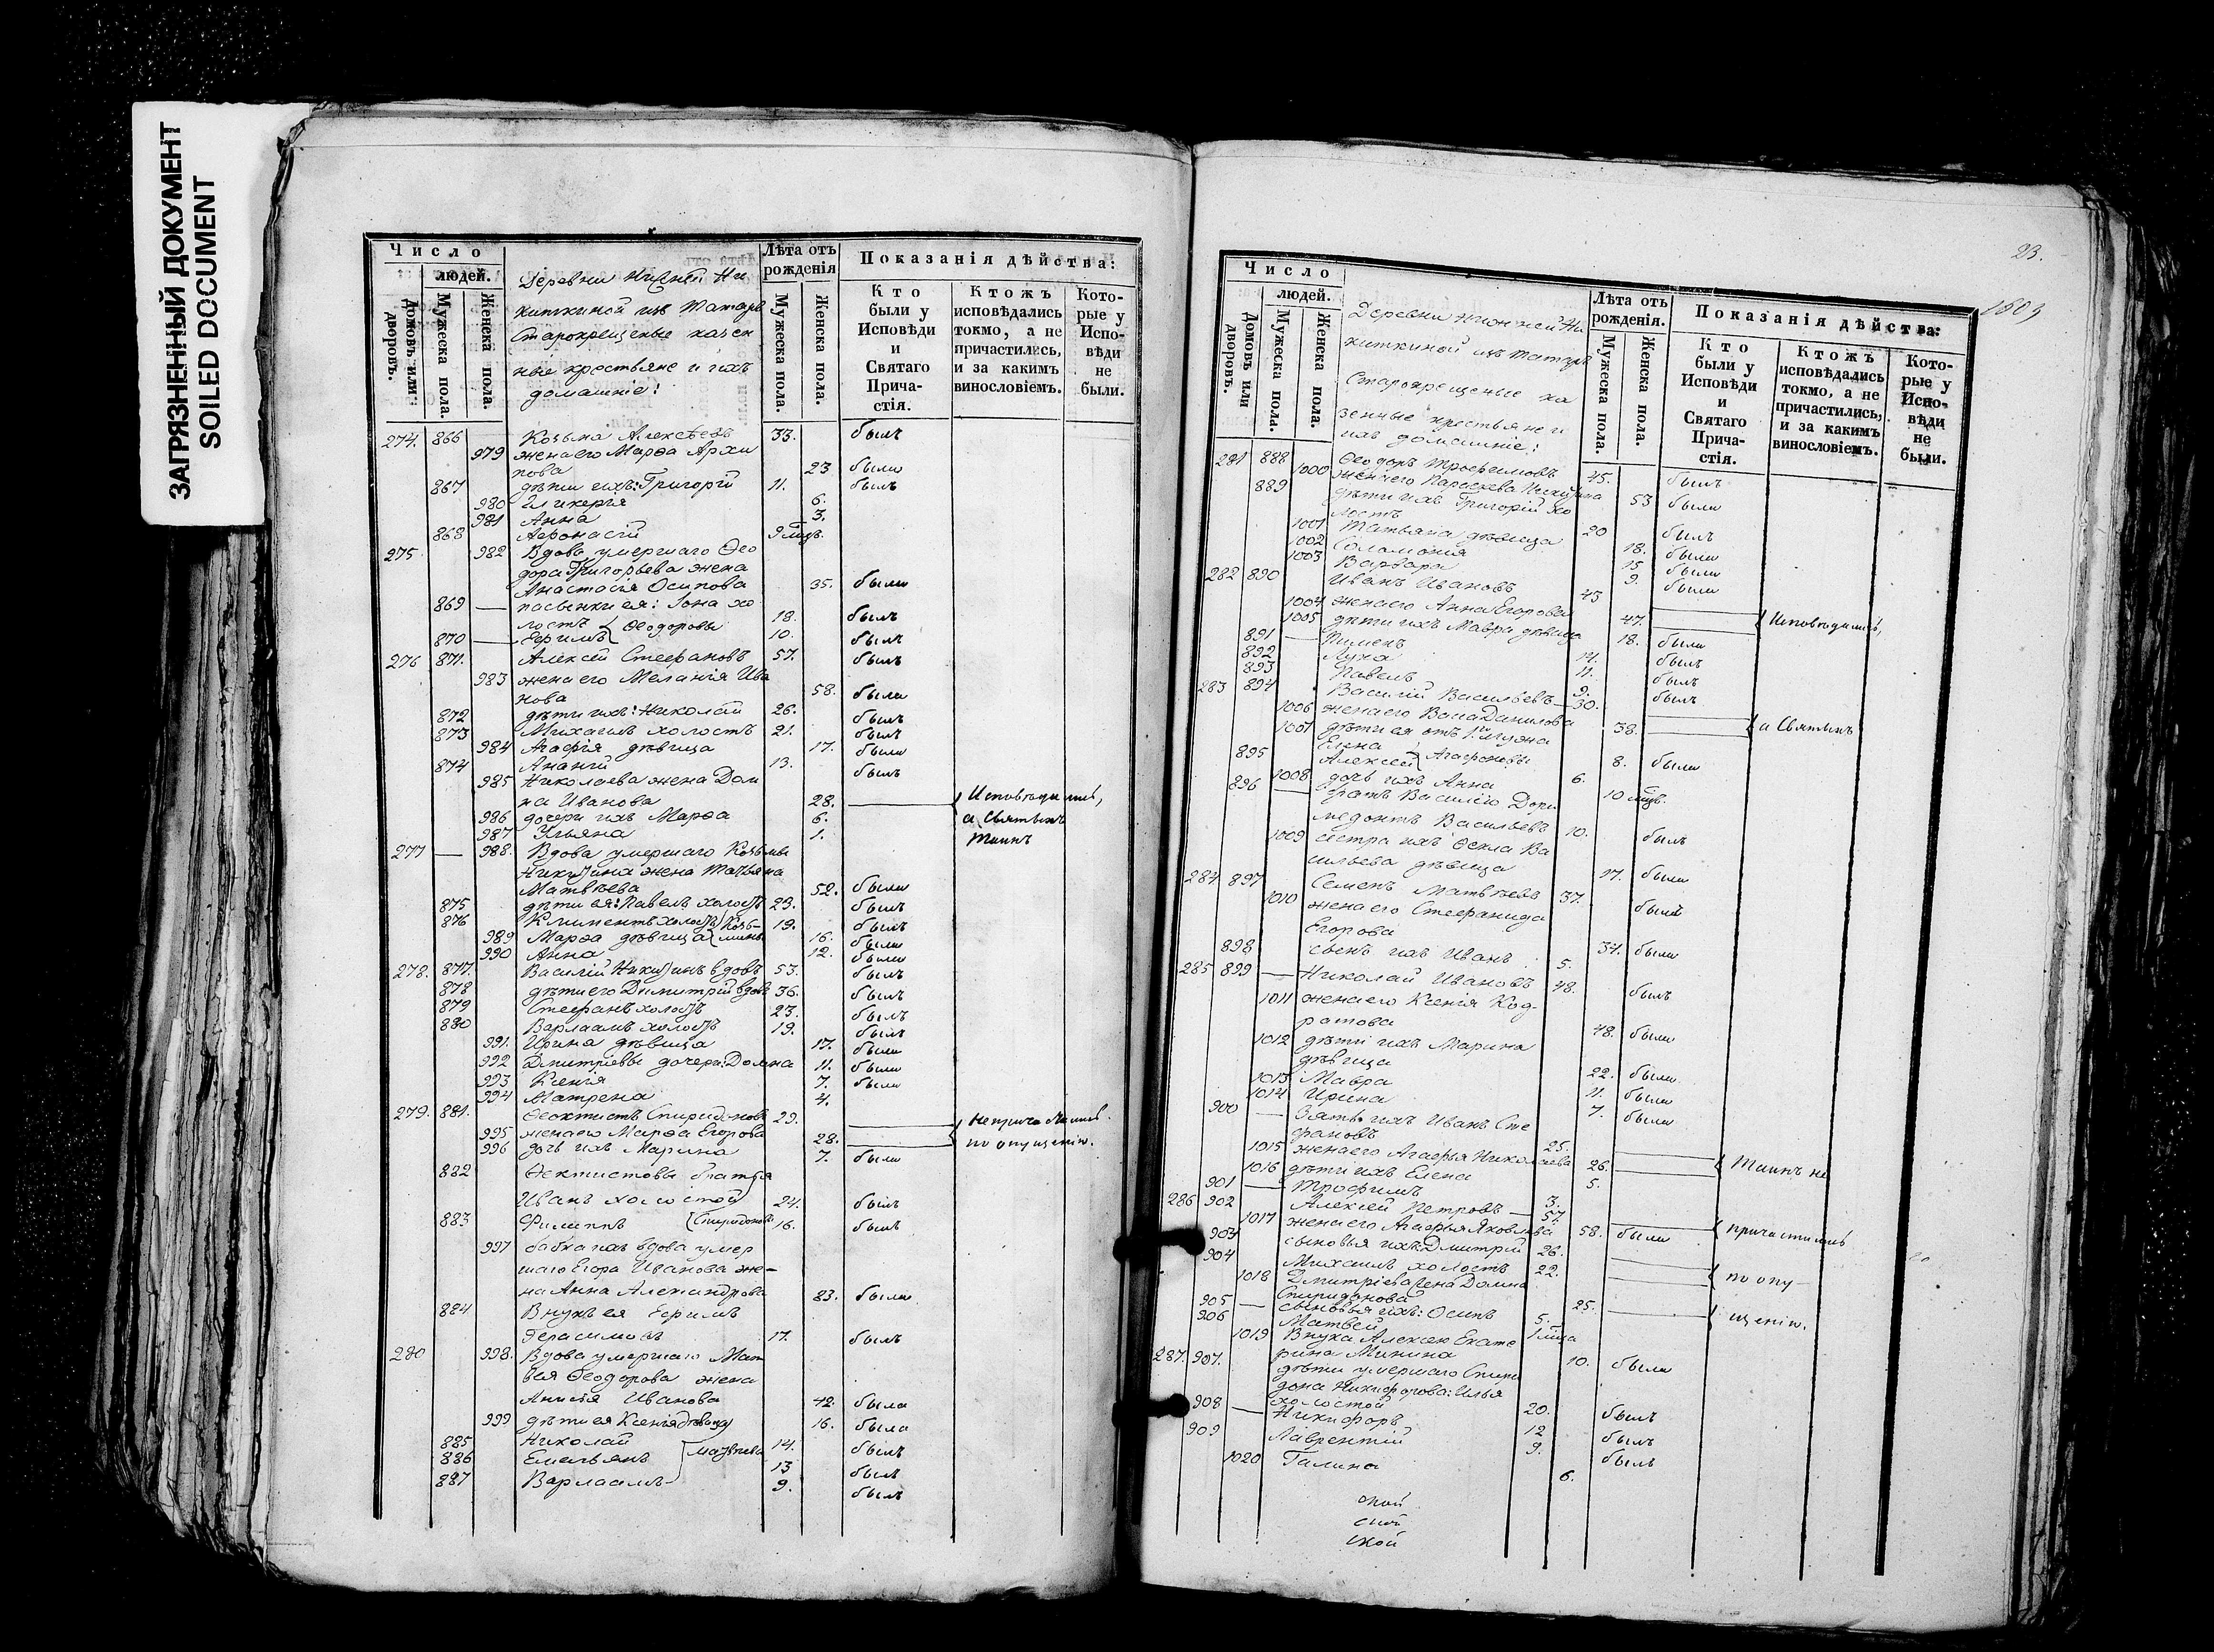 ЗАГРЯЗНЕННЫЙ ДОКУМЕНТ
SOILED DOCUMENT
Число
людей.
Домовъ или дворовъ.
Мужеска пола.
Женска пола.
Деревни Нижней Ни
киткиной изъ Татаръ
Старокрещеные казен
ные крестьяне и ихъ
домашніе:
Лѣта отъ рожденія
Мужеска пола.
Женска пола.
Показанія дѣйства:
Кто были у Исповѣди и Святаго Прича-стія.
Ктожъ исповѣдались токмо, а не причастились, и за какимъ винословіемъ.
Кото-рые у Испо-вѣди не были.
274. 866 — Козьма Алексѣевъ 33. былъ
979 жена его Марѳа Архи
пова 23 была
867 дѣти ихъ: Григорій 11. былъ
980 Гликерія 6.
981 Анна 3.
868 Аѳонасій 9 мцъ.
275 982 Вдова умершаго Ѳео
дора Григорьева жена
Анастасія Осипова 35. была
869 — пасынки ея: Іона хо
лостъ Ѳеодоровы 18. былъ
870 — Ефимъ 10. былъ
276 871. Алексѣй Стефановъ 57. былъ
983 жена его Меланія Ива
нова 58. была
872 дѣти ихъ: Николай 26. былъ
873 Михаилъ холостъ 21. былъ
984 Агафія дѣвица 17. была
874 Ананій 13. былъ
985 Николаева жена Дом
на Иванова 28. — Исповѣдались,
986 дочери ихъ Марѳа 6. а Святыхъ
987 Ульяна 1. Таинъ
277 — 988. Вдова умершаго Козьмы
Никитина жена Татьяна
Матвѣева 52. была
875 дѣти ея: Павелъ холостъ 23. былъ
876 Климентъ холостъ Козь- 19. былъ
989 Марѳа дѣвица мины 16. была
990 Анна 12. была
278. 877. Василій Никитинъ вдовъ 53. былъ
878 дѣти его Димитрій вдовъ 36. былъ
879 Стефанъ холостъ 23. былъ
880 Варлаамъ холостъ 19. былъ
991. Ирина дѣвица 17. была
992 Дмитріевы дочери: Домна 11. была
993 Ксенія 7. была
994 Матрена 4.
279. 881. Ѳеоктистъ Спиридоновъ 29. — не причастились
995 жена его Марѳа Егорова 28. — по опущенію.
996 дочь ихъ Марина 7. была
882 Ѳектистовы братья
Иванъ холостой 24. былъ
883 Филиппъ Спиридоновы 16. былъ
997 бабка ихъ вдова умер
шаго Егора Иванова же-
на Анна Александрова 83. была
884 Внукъ ея Ефимъ
Герасимовъ 17. былъ
280 998. Вдова умершаго Мат
вея Ѳеодорова жена
Анисія Иванова 42. была
999 дѣти ея Ксенія дѣвица 16. была
885 Николай Матвѣевы 14. былъ
886 Емельянъ 13 былъ
887 Варлаамъ 9. былъ
23.
1603
Число
людей.
Домовъ или дворовъ.
Мужеска пола.
Женска пола.
Деревни Нижней Ни
киткиной изъ татаръ
Старокрещеные ка
зенные крестьяне и
ихъ домашніе:
Лѣта отъ рожденія.
Мужеска пола.
Женска пола.
Показанія дѣйства:
Кто были у Исповѣди и Святаго Прича-стія.
Ктожъ исповѣдались токмо, а не причастились, и за какимъ винословіемъ.
Кото-рые у Испо-вѣди не были.
281 888 Ѳеодоръ Трофимовъ 45. былъ
1000 жена его Параскева Никитина 53 была
889 дѣти ихъ Григорій хо
лостъ 20 былъ
1001 Татьяна дѣвица 18. была
1002 Соломонія 15 была
1003 Варвара 9. была
282 890 Иванъ Ивановъ 45 —
1004 жена его Анна Егорова 47. — Исповѣдались,
1005 дѣти ихъ Мавра дѣвица 18. была
891 — Пименъ 14. былъ
892 Лука 11. былъ
893 Павелъ 9. былъ
283 894 Василій Васильевъ — 30. —
1006 жена его Васса Данилова 38. — а Святыхъ
1007 дѣти ея отъ 1го мужа
Елена Агафоновы 8. была
895 Алексѣй 6.
1008 дочь ихъ Анна 10 мцъ.
896 — братъ Василію Дори
медонтъ Васильевъ 10. былъ
1009 сестра ихъ Ѳекла Ва
сильева дѣвица 17. была
284 897 Семенъ Матвѣевъ 37. былъ
1010 жена его Стефанида
Егорова 34. была
898 сынъ ихъ Иванъ 5.
285 899 — Николай Ивановъ 48. былъ
1011 жена его Ксенія Код-
ратова 48. была
1012 дѣти ихъ Марина
дѣвица 22. была
1013 Мавра 11. была
1014 Ирина 7. была
900 — Зять ихъ Иванъ Сте
фановъ 25. —
1015 жена его Агафья Николаева 26. — Таинъ не
1016 дѣти ихъ Елена 5.
901 — Трофимъ 3.
286 902 Алексѣй Петровъ — 57. —
1017 жена его Агафья Яковлева 58. была причастились
903 сыновья ихъ: Дмитрій 26. —
904 Михаилъ холостъ 22. —
1018 Дмитріева жена Домна по опу
Спиридонова 25. —
905 — сыновья ихъ: Осипъ 5. щенію.
906 Матвей 1 мца
1019 Внука Алексѣю Екате
рина Минина 10. была
287. 907. дѣти умершаго Спири
дона Никифорова: Илья
холостой 20. былъ
908 — Никифоръ 12 былъ
909 Лаврентій 9. былъ
1020 Галина 6.
ской
ской
ской